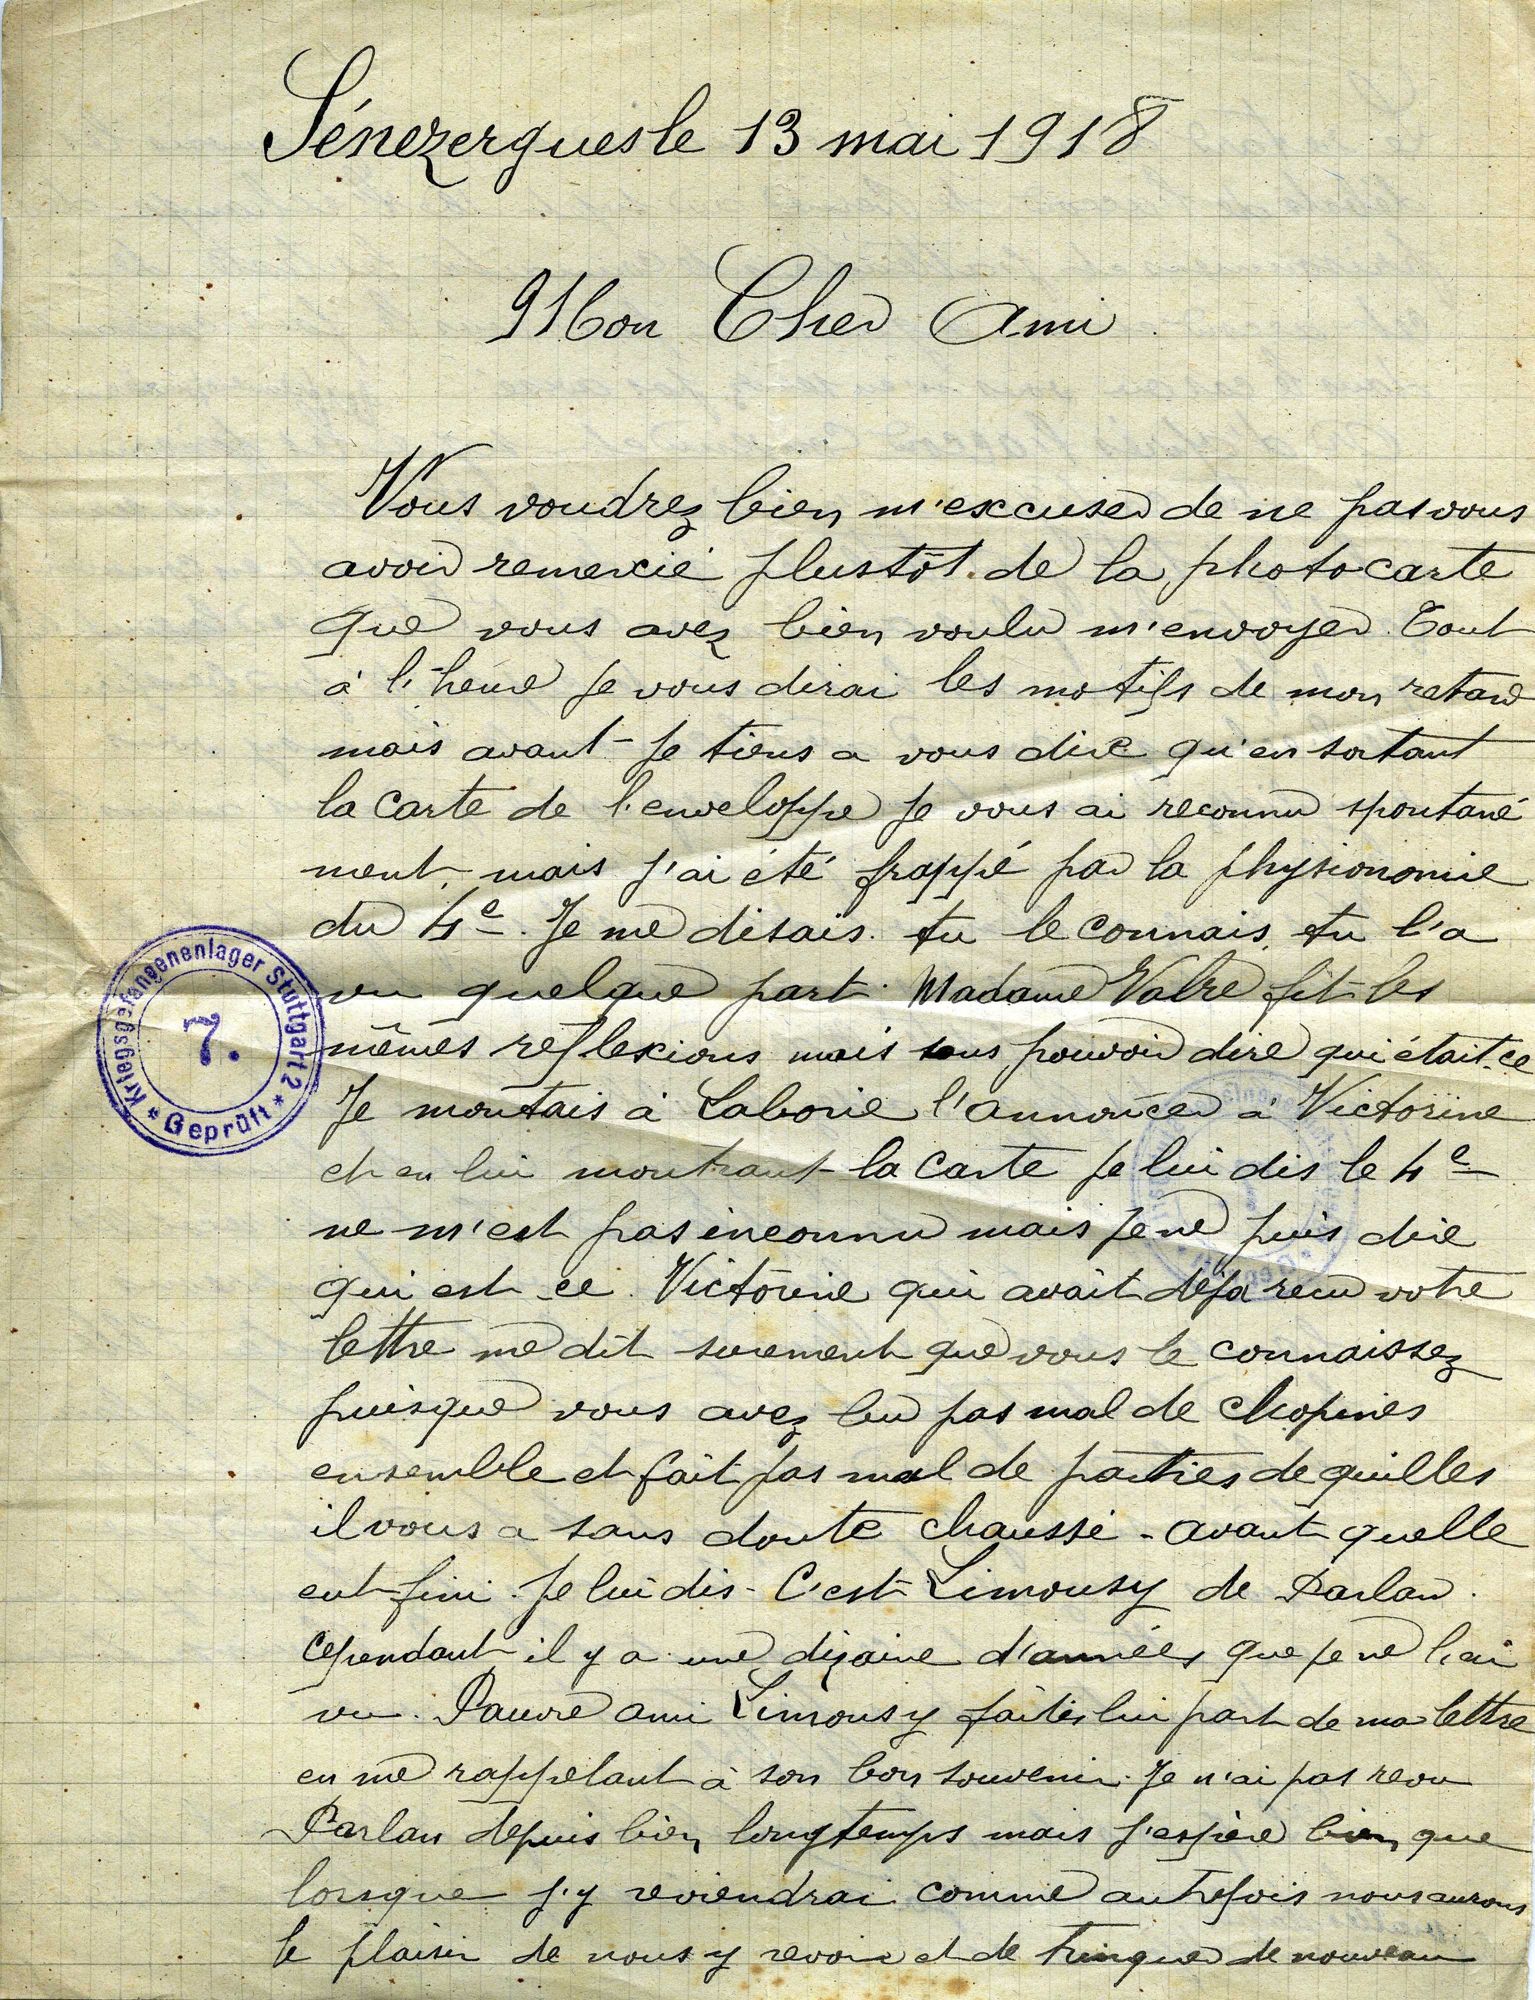 Sénezergues le 13 mai 1918
Mon Cher Ami
Vous voudrez bien m'excuser de ne pas vous
avoir remercié plustôt de la photo carte
que vous avez bien voulu m'envoyer. Tout
à l'heure je vous dirai les motifs de mon retard
mais avant je tiens a vous dire qu'en sortant
la carte de l'enveloppe je vous ai reconnu spontané
ment, mais j'ai été frappé par la physionomie
du 4e. Je me disais. tu le connais, tu l'a
vu quelque part. Madame Valre fit les
mêmes réflexions mais sans pouvoir dire qui était-ce
Je montais à Laborie l'annoncer à Victorine
et en lui montrant la carte je lui dis le 4e
ne m'est pas inconnu mais je ne puis dire
qui est-ce. Victorine qui avait déja recu votre
lettre me dit surement que vous le connaissez
puisque vous avez bu pas mal de chopines
ensemble et fait pas mal de parties de quilles
il vous a sans doute chaussé - avant quelle
eut fini je lui dis - C'est Limousy de Parlan.
Cependant il y a une dizaine d'années que je ne l'ai
vu. Pauvre ami Limousy faites lui part de ma lettre
en me rappelant à son bon souvenir. Je n'ai pas revu
Parlan depuis bien longtemps mais j'espère bien que
lorsque j'y reviendrai comme autrefois nous aurons
le plaisir de nous y revoir et de trinquer de nouveau
Kriegsgefangenenlager Stuttgart 2
7.
* Geprüft *